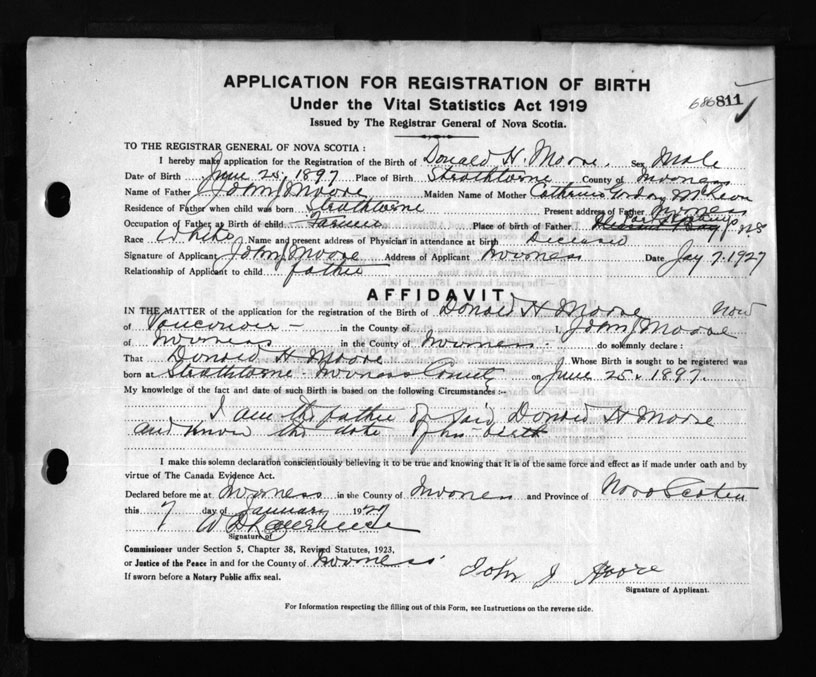 APPLICATION FOR REGISTRATION OF BIRTH
Under the Vital Statistics Act 1919
Issued by The Registrar General of Nova Scotia.
686811
TO THE REGISTRAR GENERAL OF NOVA SCOTIA :
I hereby make application for the Registration of the Birth of Donald H. Moore. Sex Male
Date of Birth June 25, 1897 Place of Birth Strathlorne County of Inverness
Name of Father John J Moore Maiden Name of Mother Catherine Gordon McLean
Residence of Father when child was born Strathlorne Present address of Father Inverness
Occupation of Father at Birth of child Farmer Place of birth of Father Port Hastings NS
Race White Name and present address of Physician in attendance at birth Deceased
Signature of Applicant John J Moore Address of Applicant Inverness Date Jay 7. 1927
Relationship of Applicant to child father
AFFIDAVIT
IN THE MATTER of the application for the registration of the Birth of Donald H Moore now
of Vancouver – in the County of I, John J Moore
of Inverness in the County of Inverness do solemnly declare :
That Donald H Moore Whose Birth is sought to be registered was
born at Strathlorne Inverness County on June 25, 1897.
My knowledge of the fact and date of such Birth is based on the following Circumstances :--
I am the father of said Donald H Moore
and know the date of his birth
I make this solemn declaration conscientiously believing it to be true and knowing that it is of the same force and effect as if made under oath and by
virtue of The Canada Evidence Act.
Declared before me at Inverness in the County of Inverness and Province of Nova Scotia
this 7 day of January 1927
Signature of
Commissioner under Section 5, Chapter 38, Revised Statutes, 1923,
or Justice of the Peace in and for the County of Inverness
If sworn before a Notary Public affix seal.
John J Moore
Signature of Applicant.
For Information respecting the filling out of this Form, see Instructions on the reverse side.